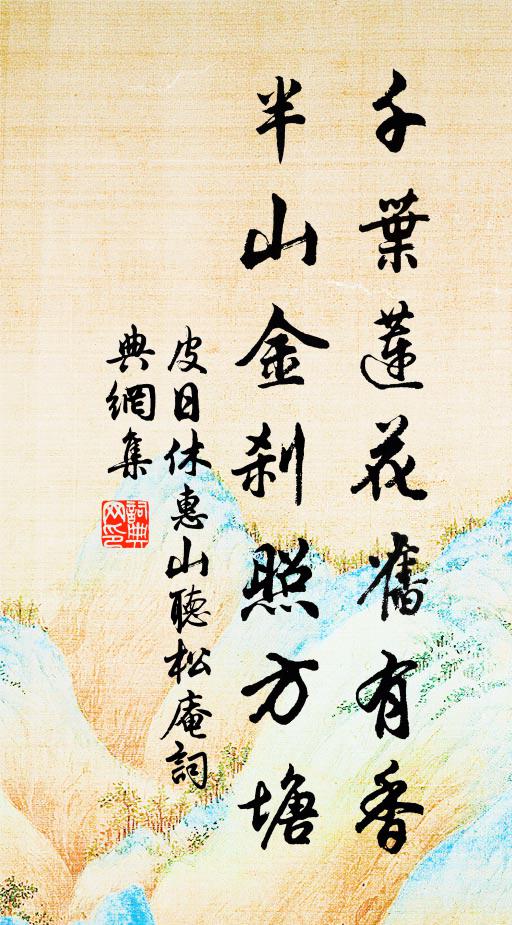 千葉蓮花舊有香
半山金刹照方塘
皮日休惠山聽松庵詞
典網集
詞典
网印